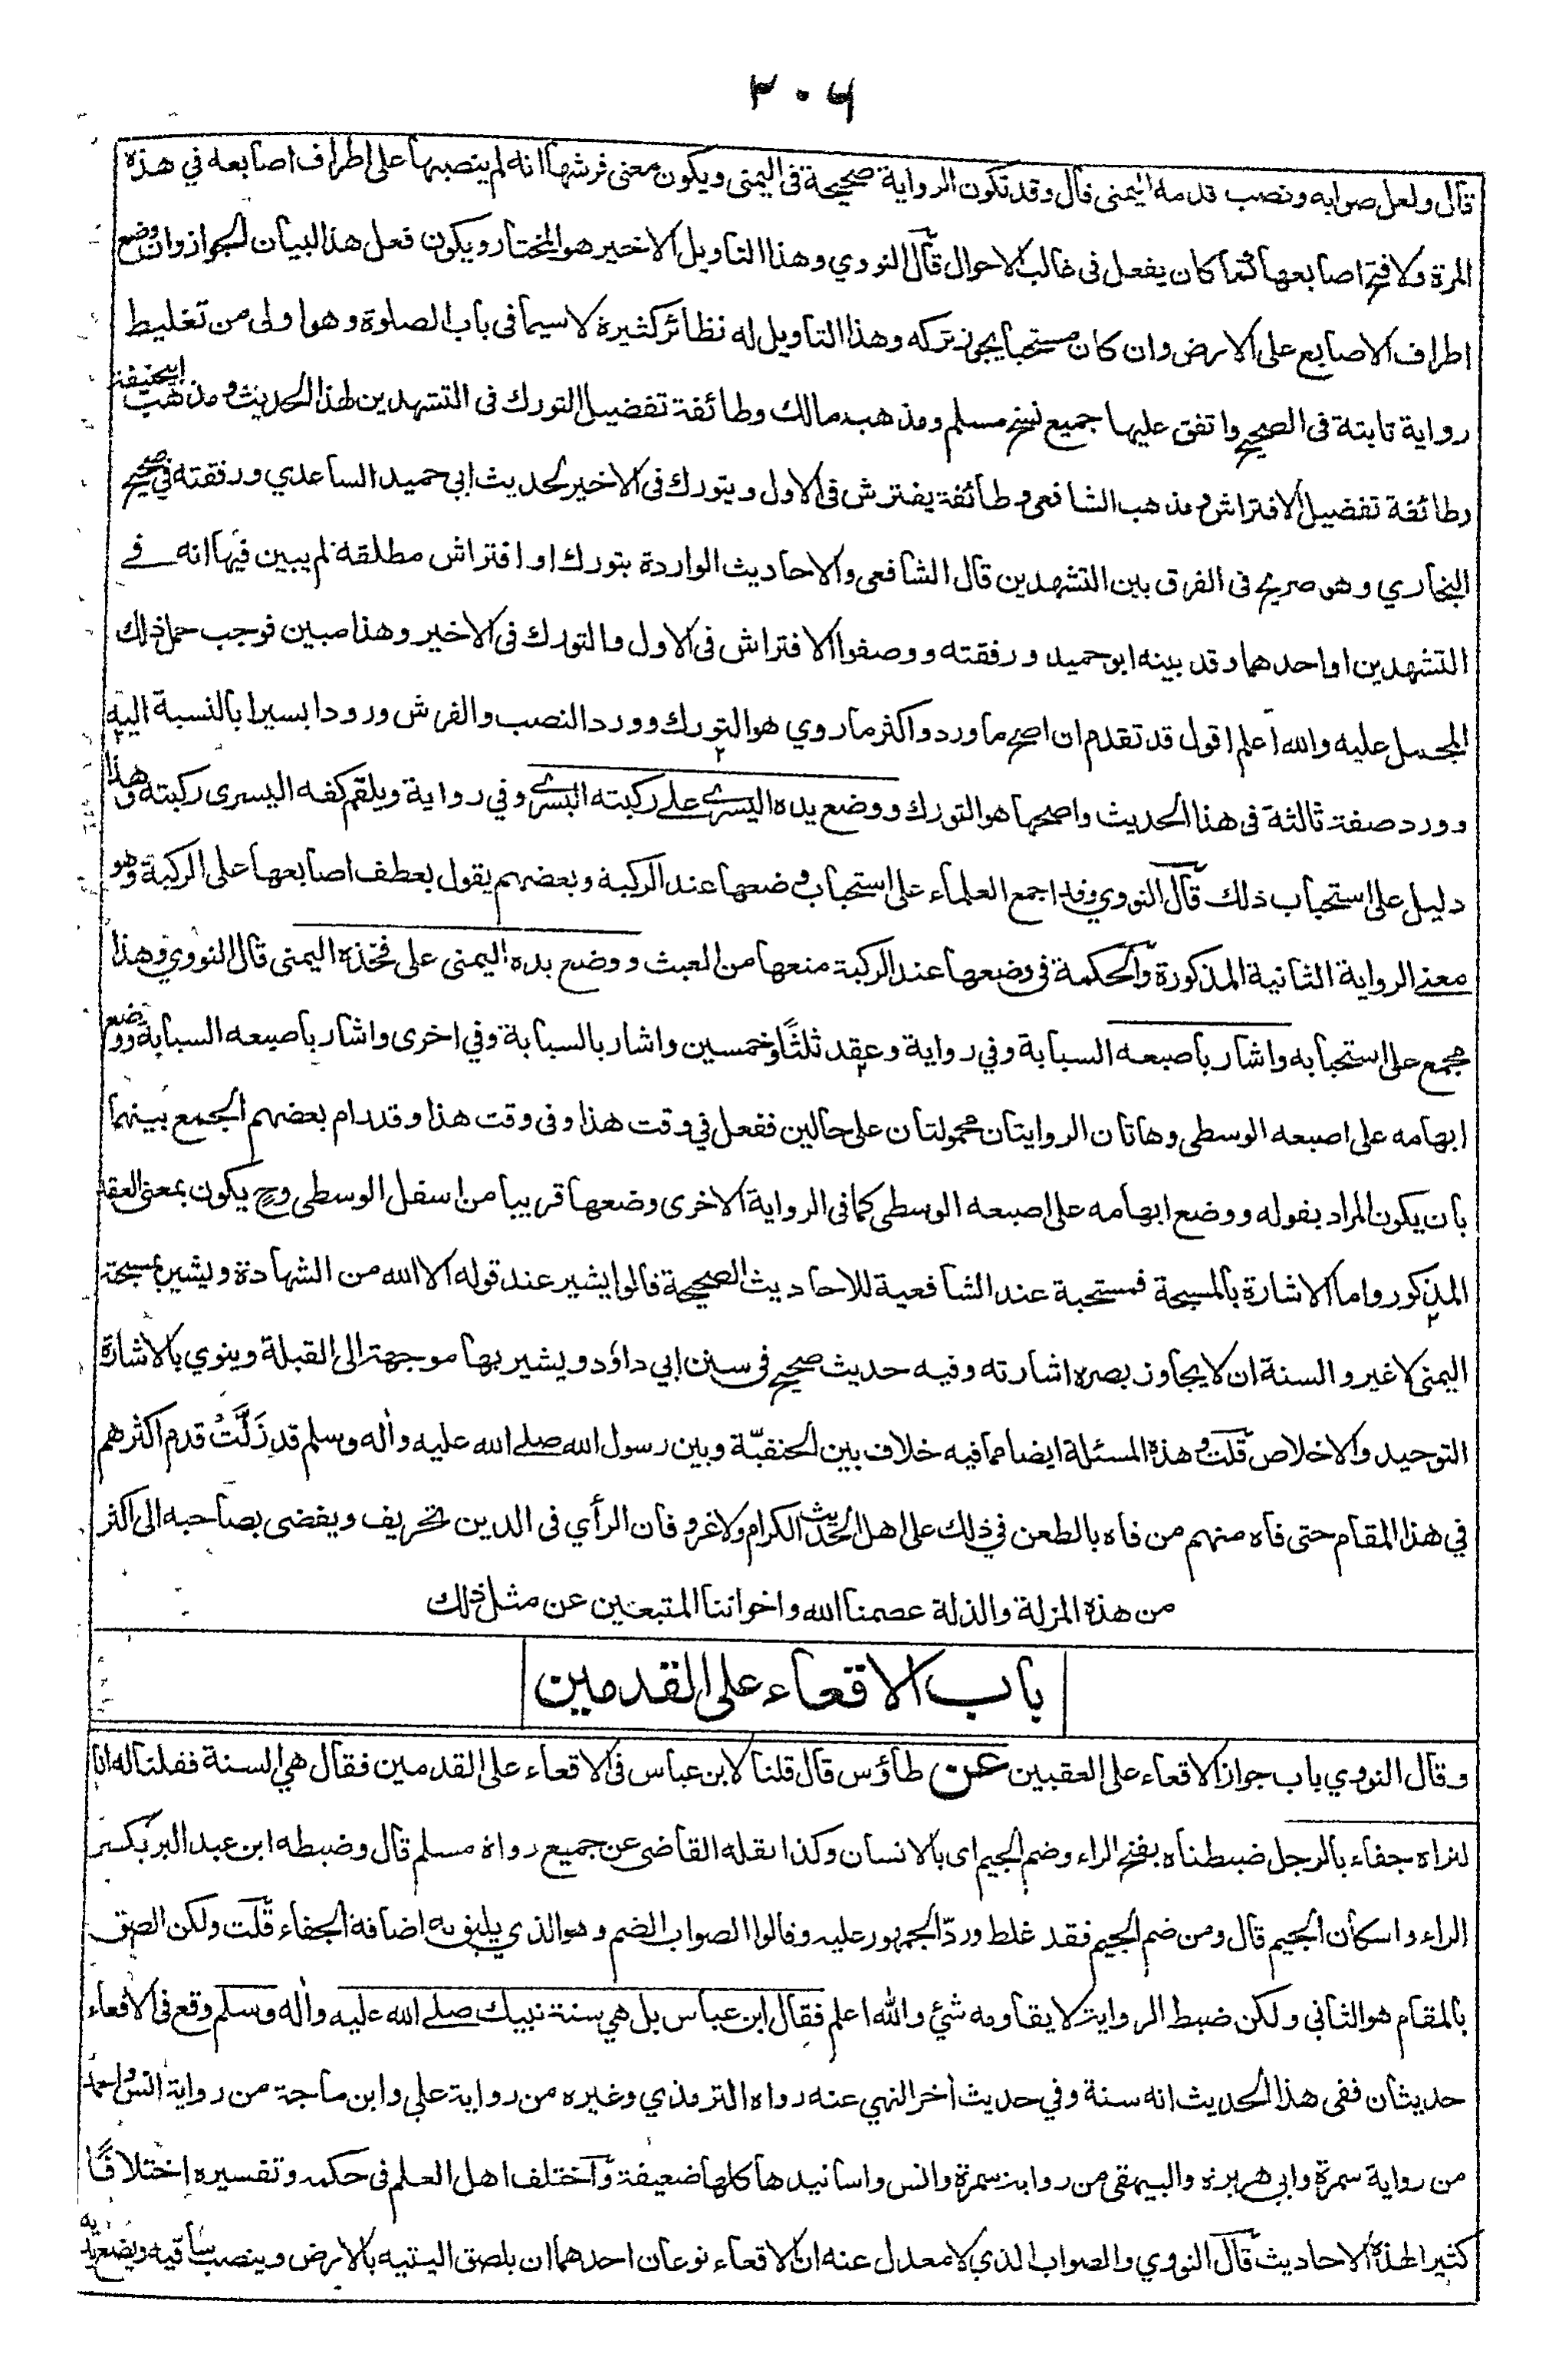 ٣٠٦
قال ولعل صوابه ونصب قدمه اليمنى قال وقد تكون الرواية صحيحة فى اليمنى ويكون معنى فرشها انه لم ينصبها على اطراف اصابعه في هذه
المرة ولا فتح اصابعها كما كان يفعل فى غالب الاحوال قال النووي وهذا التاويل الاخير هو المختار ويكون فعل هذا لبيان الجواز وان وضع
اطراف الاصابع على الارض وان كان مستحبا يجوز تركه وهذا التاويل له نظائر كثيرة لا سيما فى باب الصلوة وهو اولى من تغليط
رواية ثابتة فى الصحيح واتفق عليها جميع نسخ مسلم ومذهب مالك وطائفة تفضيل التورك فى التشهدين لهذا الحديث ومذهب ابيحنيفة
وطائفة تفضيل الافتراش ومذهب الشافعى وطائفة يفترش فى الاول ويتورك فى الاخير لحديث ابى حميد الساعدي ورفقته في صحيح
البخاري وهو صريح فى الفرق بين التشهدين قال الشافعى والاحاديث الواردة بتورك او افتراش مطلقة لم يبين فيها انه في
التشهدين او احدهما وقد بينه ابو حميد ورفقته ووصفوا الافتراش فى الاول والتورك فى الاخير وهذا مبين فوجب حمل ذلك
المجمل عليه والله اعلم اقول قد تقدم ان اصح ما ورد واكثر ما روي هو التورك وورد النصب والفرش ورودا يسيرا بالنسبة اليه
وورد صفة ثالثة فى هذا الحديث واصحها هو التورك ووضع يده اليسرى على ركبته اليسرى وفي رواية ويلقم كفه اليسرى ركبته وهذا
دليل على استحباب ذلك قال النووي وقد اجمع العلماء على استحباب وضعها عند الركبة وبعضهم يقول بعطف اصابعها على الركبة وهو
معنى الرواية الثانية المذكورة والحكمة فى وضعها عند الركبة منعها من العبث ووضع يده اليمنى على فخذه اليمنى قال النووي وهذا
مجمع على استحبابه واشار باصبعه السبابة وفي رواية وعقد ثلثًا وخمسين واشار بالسبابة وفي اخرى واشار باصبعه السبابة ووضع
ابهامه على اصبعه الوسطى وهاتان الروايتان محمولتان على حالين ففعل في وقت هذا وفى وقت هذا وقد رام بعضهم الجمع بينهما
بان يكون المراد بقوله ووضع ابهامه على اصبعه الوسطى كما فى الرواية الاخرى وضعها قريبا من اسفل الوسطى وح يكون بمعنى العقد
المذكور واما الاشارة بالمسبحة فمستحبة عند الشافعية للاحاديث الصحيحة قالوا يشير عند قوله الا الله من الشهادة ويشير بمسبحة
اليمنى لا غير والسنة ان لا يجاوز بصره اشارته وفيه حديث صحيح فى سنن ابي داؤد ويشير بها موجهة الى القبلة وينوي بالاشارة
التوحيد والاخلاص قلت وهذه المسئلة ايضا مما فيه خلاف بين الحنفيّة وبين رسول الله صلى الله عليه واله وسلم قد زَلَّتْ قدم اكثرهم
في هذا المقام حتى فاه منهم من فاه بالطعن في ذلك على اهل الحديث الكرام ولا غرو فان الرأي فى الدين تحريف ويفضى بصاحبه الى اكثر
من هذه المزلة والذلة عصمنا الله واخواننا المتبعين عن مثل ذلك
باب الاقعاء على القدمين
وقال النووي باب جواز الاقعاء على العقبين عن طاؤس قال قلنا لابن عباس فى الاقعاء على القدمين فقال هي السنة فقلنا له انا
لنراه جفاء بالرجل ضبطناه بفتح الراء وضم الجيم اى بالانسان وكذا نقله القاضى عن جميع رواة مسلم قال وضبطه ابن عبد البر بكسر
الراء واسكان الجيم قال ومن ضم الجيم فقد غلط وردّ الجمهور عليه وقالوا الصواب الضم وهو الذي يليق به اضافة الجفاء قلت ولكن الصق
بالمقام هو الثاني ولكن ضبط الرواية لا يقاومه شئ والله اعلم فقال ابن عباس بل هي سنة نبيك صلى الله عليه واله وسلم وقع فى الاقعاء
حديثان ففى هذا الحديث انه سنة وفي حديث اخر النهي عنه رواه الترمذي وغيره من رواية علي وابن ماجة من رواية انس واحمد
من رواية سمرة وابي هريرة والبيهقى من رواية سمرة وانس واسانيدها كلها ضعيفة واختلف اهل العلم فى حكمه وتفسيره اختلافًا
كثيرا لهذه الاحاديث قال النووي والصواب الذي لا معدل عنه ان الاقعاء نوعان احدهما ان يلصق اليتيه بالارض وينصب ساقيه ويضع يديه